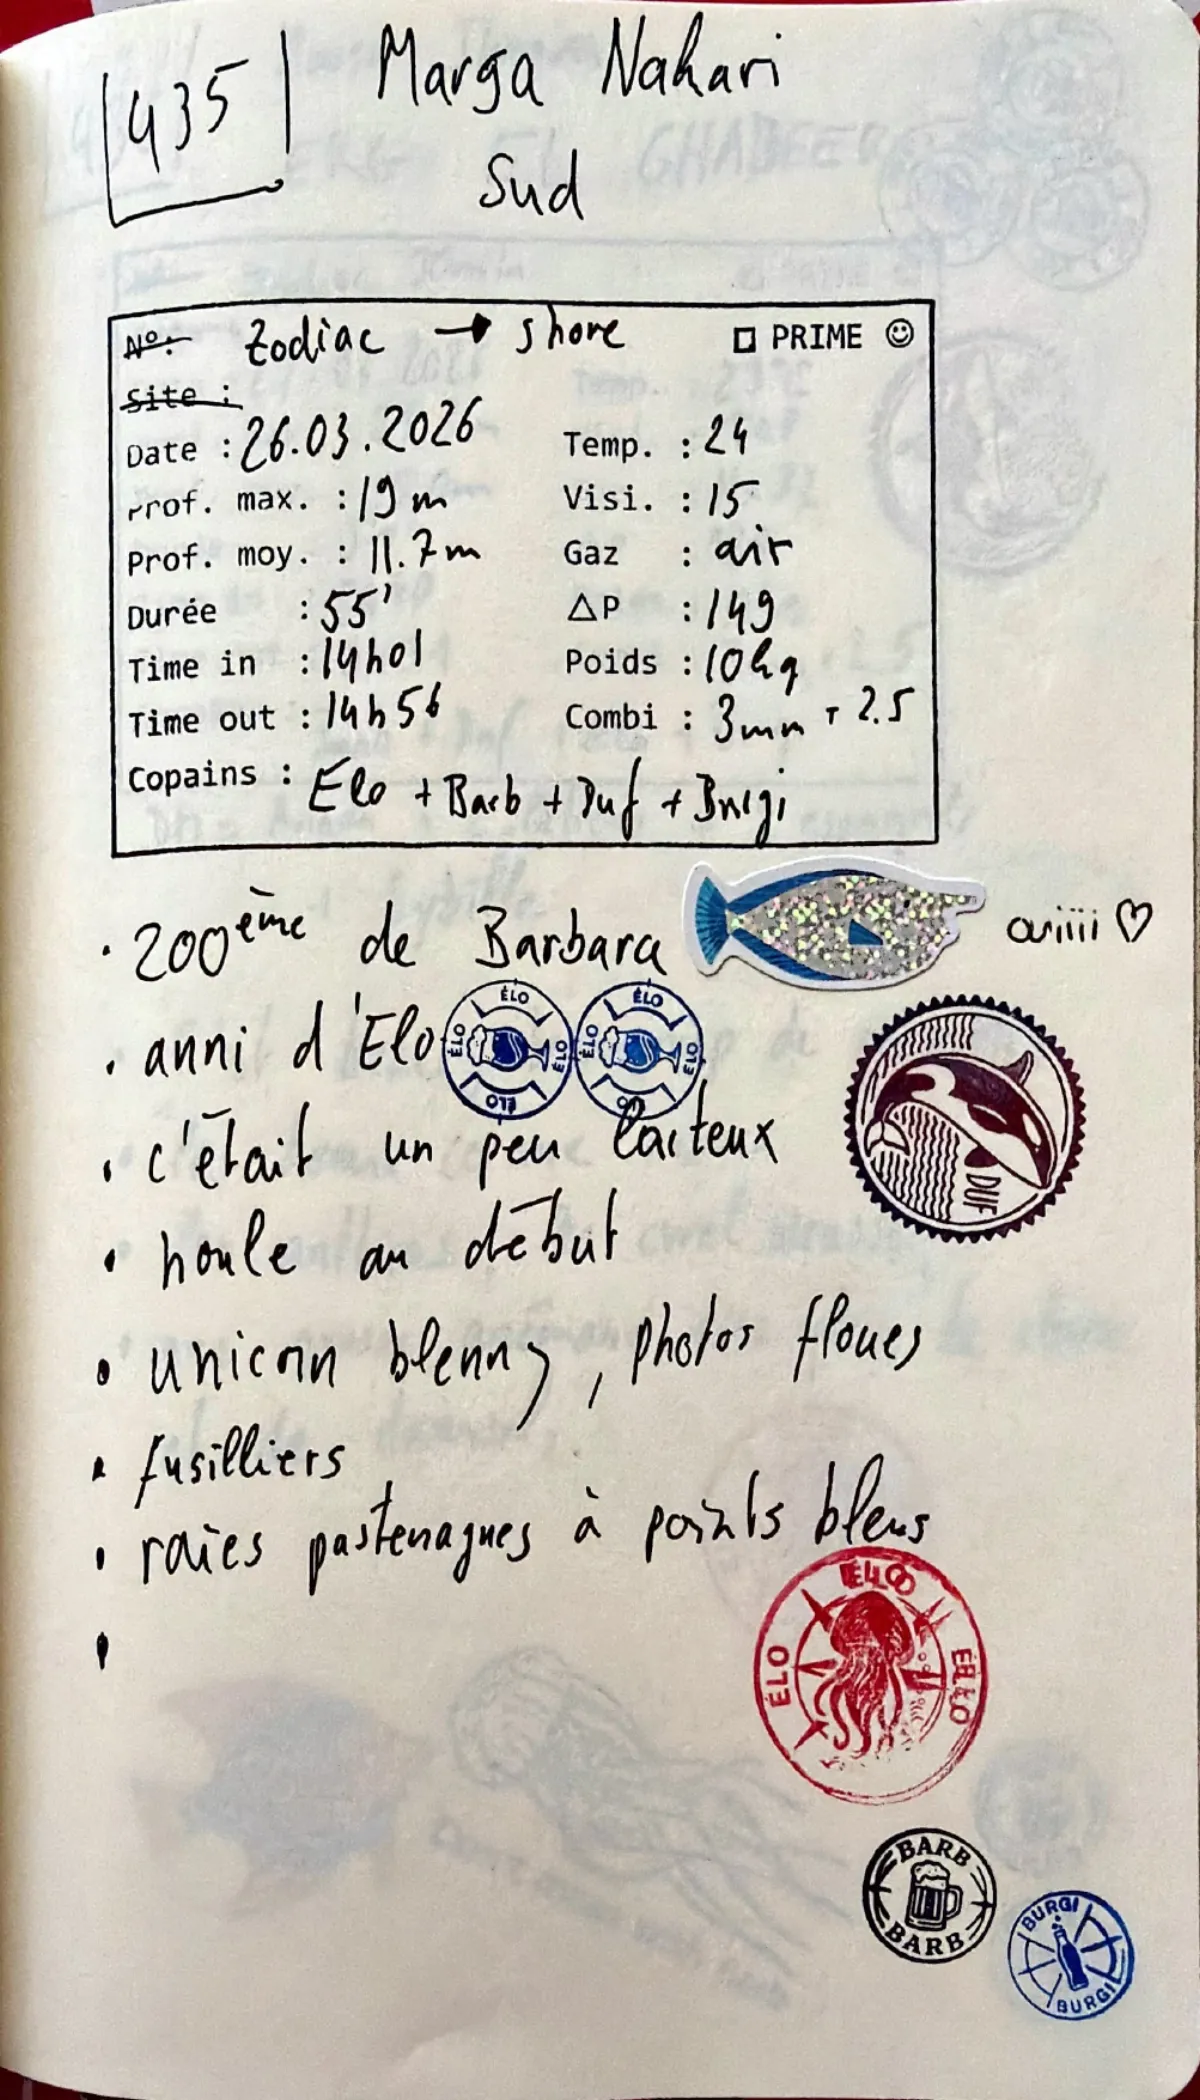 435
Marga Nahari
Sud
N°: Zodiac → shore □ PRIME ☺
Site :
Date : 26.03.2026 Temp. : 24
Prof. max. : 19 m Visi. : 15
Prof. moy. : 11.7 m Gaz : air
Durée : 55' ΔP : 149
Time in : 14h01 Poids : 10kg
Time out : 14h56 Combi : 3mm + 2.5
Copains : Elo + Barb + Duf + Burgi
• 200ème de Barbara ouiiii ♡
• anni d'Elo
ÉLO ÉLO ÉLO ÉLO
ÉLO ÉLO ÉLO
• c'était un peu laiteux
DUF
• houle au début
• unicorn blenny, photos floues
• fusilliers
• raies pastenagues à points bleus
•
ÉLO
BARB
BARB
BURGI
BURGI